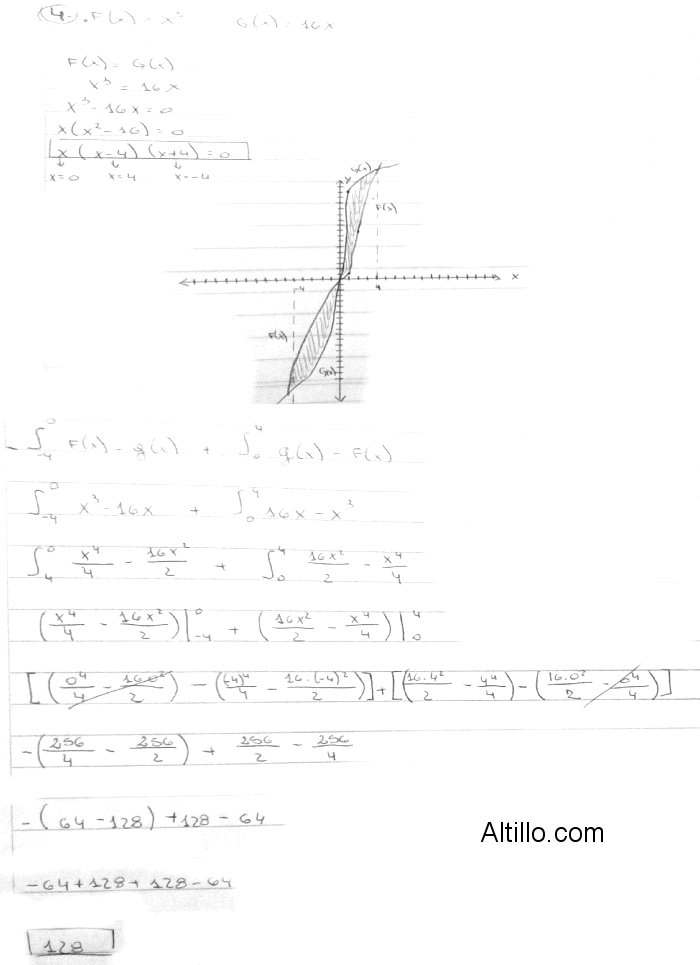 4. F(x) = x³ G(x) = 16x
F(x) = G(x)
x³ = 16x
x³ - 16x = 0
x(x² - 16) = 0
x (x-4) (x+4) = 0
x=0 x=4 x=-4
G(x)
y
F(x)
-4 4 x
F(x)
G(x)
∫₋₄⁰ F(x) - g(x) + ∫₀⁴ g(x) - F(x)
∫₋₄⁰ x³ - 16x + ∫₀⁴ 16x - x³
∫₄⁰ x⁴/4 - 16x²/2 + ∫₀⁴ 16x²/2 - x⁴/4
(x⁴/4 - 16x²/2)|₋₄⁰ + (16x²/2 - x⁴/4)|₀⁴
[(0⁴/4 - 16·0²/2) - ((-4)⁴/4 - 16·(-4)²/2)] + [(16·4²/2 - 4⁴/4) - (16·0²/2 - 0⁴/4)]
-(256/4 - 256/2) + 256/2 - 256/4
-(64 - 128) + 128 - 64
Altillo.com
-64 + 128 + 128 - 64
128